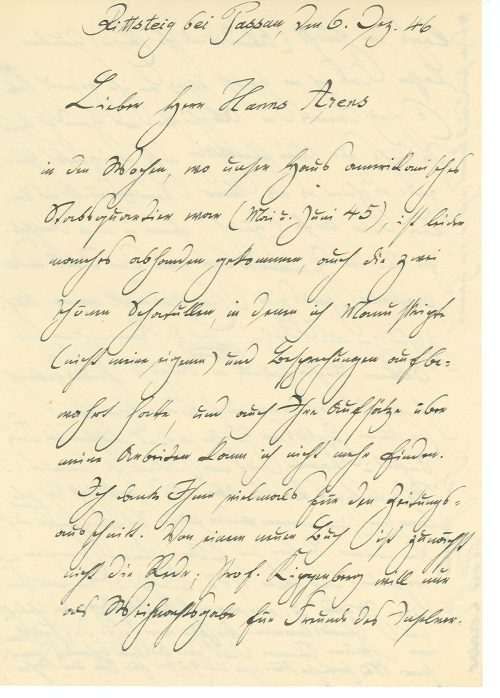 Rittsteig bei Passau, den 6. Dez. 46
Lieber Herr Hanns Arens
in den Wochen, wo unser Haus amerikanisches
Stabsquartier war (Mai u. Juni 45), ist leider
manches abhanden gekommen, auch die zwei
schönen Schatullen, in denen ich Manuskripte
(nicht meine eigenen) und Besprechungen aufbe-
wahrt hatte, und auch Ihre Aufsätze über
meine Arbeiten kann ich nicht mehr finden.
Ich danke Ihnen vielmals für den Zeitungs-
ausschnitt. Von einem neuen Buch ist zunächst
nicht die Rede; Prof. Kippenberg will nur
als Weihnachtsgabe für Freunde des Inselver-